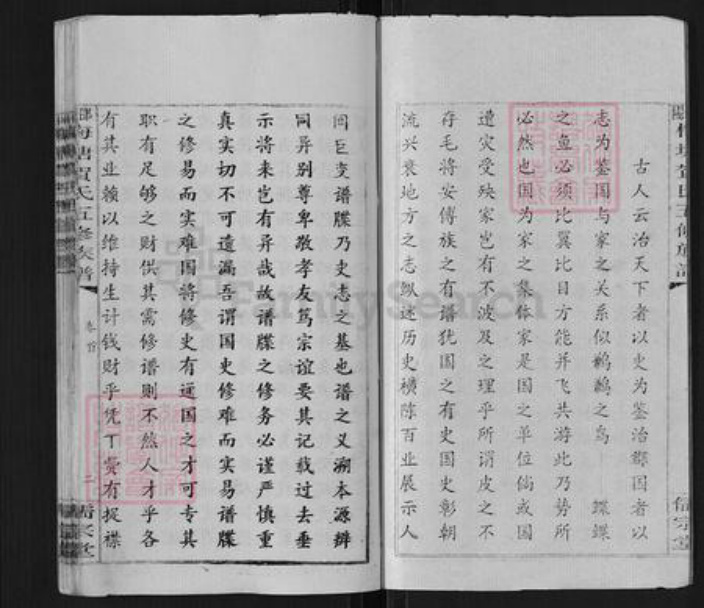 古人云治天下者以史为鉴治郡国者以
志为鉴国与家之关系似鹣鹣之鸟 鲽鲽
之鱼必须比翼比目方能并飞共游此乃势所
必然也国为家之集体家是国之单位倘或国
遭灾受殃家岂有不波及之理乎所谓皮之不
存毛将安傅族之有谱犹国之有史国史彰朝
流兴衰地方之志纵述历史横陈百业展示人
间巨变谱牒乃史志之基也谱之义溯本源辨
同异别尊卑敬孝友笃宗谊要其记载过去垂
示将来岂有异哉故谱牒之修务必谨严慎重
真实切不可遗漏吾谓国史修难而实易谱牒
之修易而实难国将修史有通国之才可专其
职有足够之财供其需修谱则不然人才乎各
有其业赖以维持生计钱财乎凭丁费有捉襟
塘贺氏五修族谱
卷首
二
FamilySearch